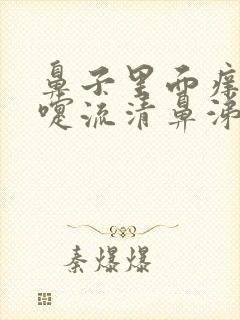 鼻子里面痒
嚏流清鼻涕
秦爆爆